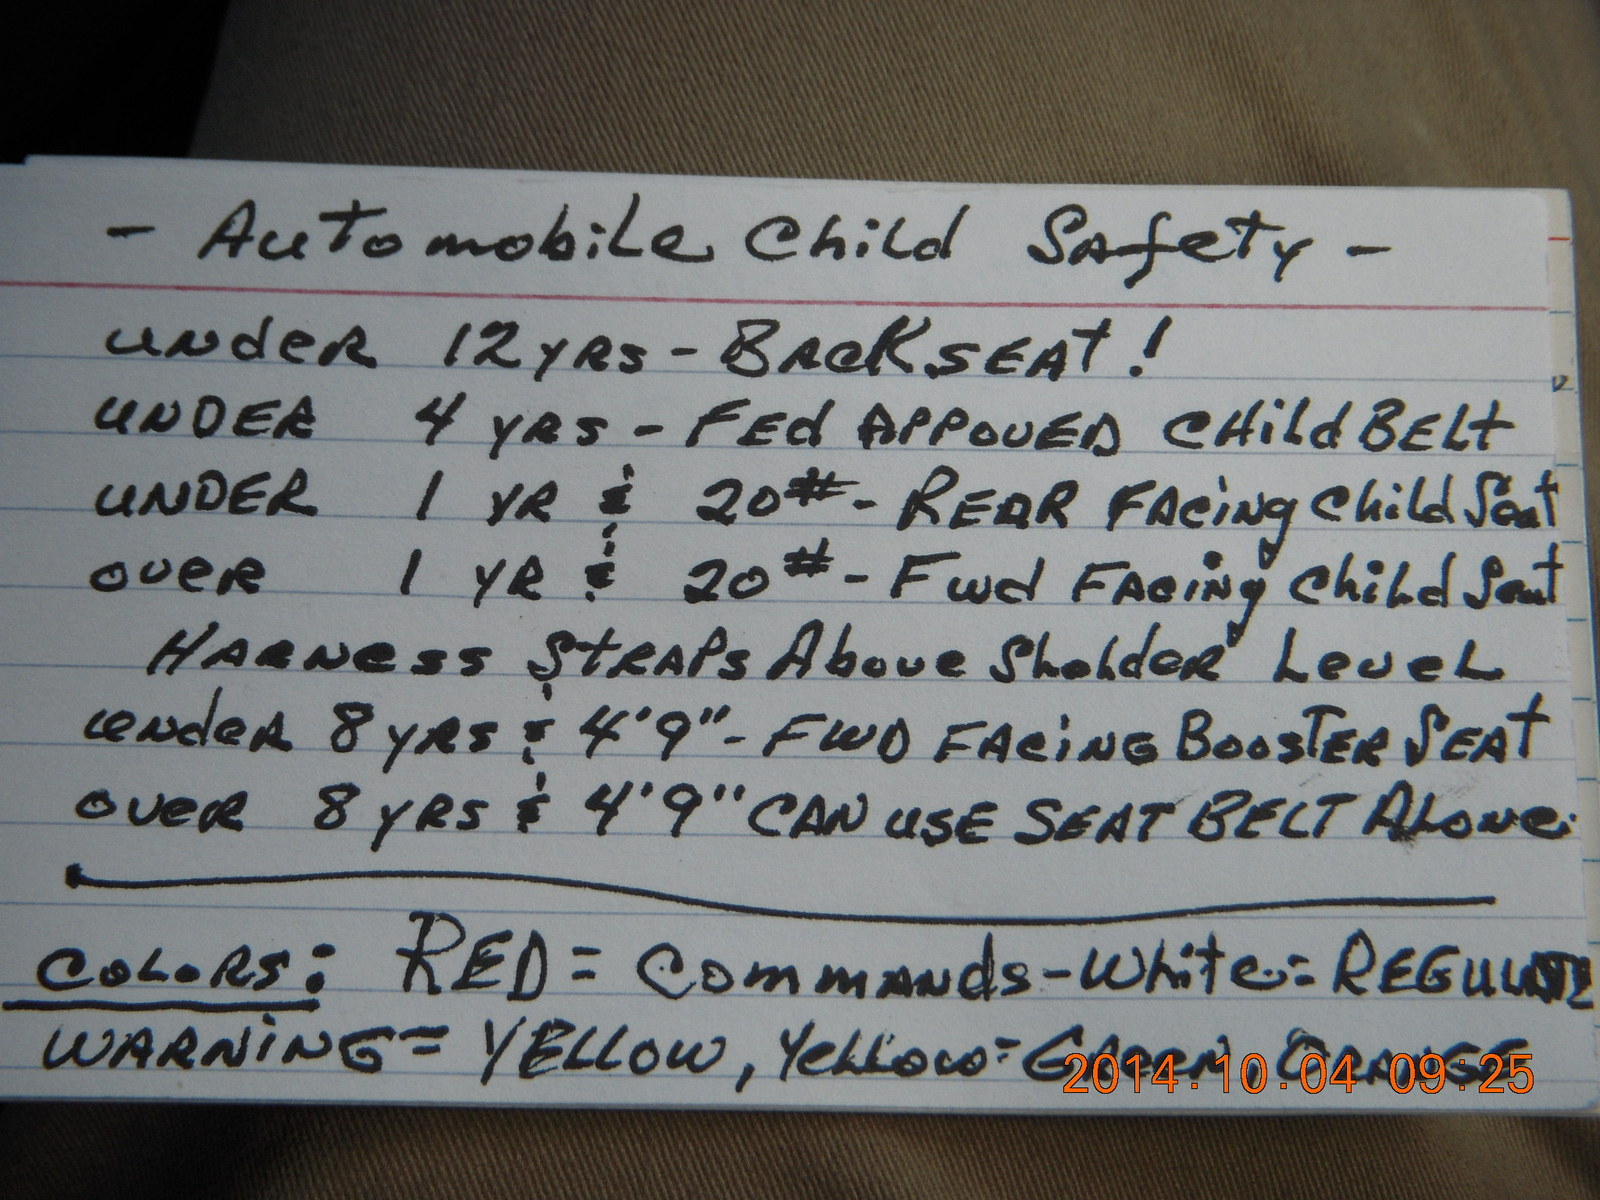 - Automobile Child Safety -
under 12 yrs - Back seat!
under 4 yrs - Fed Appoved Child Belt
under 1 yr & 20# - Rear Facing Child Seat
over 1 yr & 20# - Fwd Facing Child Seat
Harness Straps Above Sholder Level
under 8 yrs & 4'9" - Fwd Facing Booster Seat
over 8 yrs & 4'9" can use seat belt alone.
Colors: Red = Commands - White = Regulate
Warning = Yellow, Yellow = Green, Orange
2014.10.04 09:25